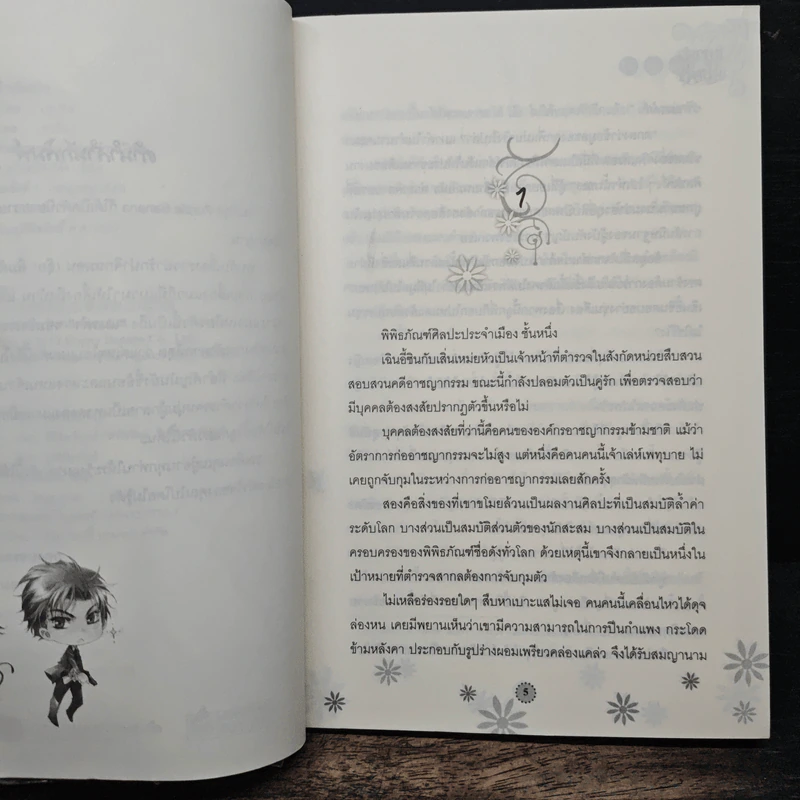 1
พิพิธภัณฑ์ศิลปะประจำเมือง ชั้นหนึ่ง
เฉินอี้ซินกับเสิ่นเหม่ยหัวเป็นเจ้าหน้าที่ตำรวจในสังกัดหน่วยสืบสวน
สอบสวนคดีอาชญากรรม ขณะนี้กำลังปลอมตัวเป็นคู่รัก เพื่อตรวจสอบว่า
มีบุคคลต้องสงสัยปรากฏตัวขึ้นหรือไม่
บุคคลต้องสงสัยที่ว่านี้คือคนขององค์กรอาชญากรรมข้ามชาติ แม้ว่า
อัตราการก่ออาชญากรรมจะไม่สูง แต่หนึ่งคือคนคนนี้เจ้าเล่ห์เพทุบาย ไม่
เคยถูกจับกุมในระหว่างการก่ออาชญากรรมเลยสักครั้ง
สองคือสิ่งของที่เขาขโมยล้วนเป็นผลงานศิลปะที่เป็นสมบัติล้ำค่า
ระดับโลก บางส่วนเป็นสมบัติส่วนตัวของนักสะสม บางส่วนเป็นสมบัติใน
ครอบครองของพิพิธภัณฑ์ชื่อดังทั่วโลก ด้วยเหตุนี้เขาจึงกลายเป็นหนึ่งใน
เป้าหมายที่ตำรวจสากลต้องการจับกุมตัว
ไม่เหลือร่องรอยใดๆ สืบหาเบาะแสไม่เจอ คนคนนี้เคลื่อนไหวได้ดุจ
ล่องหน เคยมีพยานเห็นว่าเขามีความสามารถในการปีนกำแพง กระโดด
ข้ามหลังคา ประกอบกับรูปร่างผอมเพรียวคล่องแคล่ว จึงได้รับสมญานาม
5